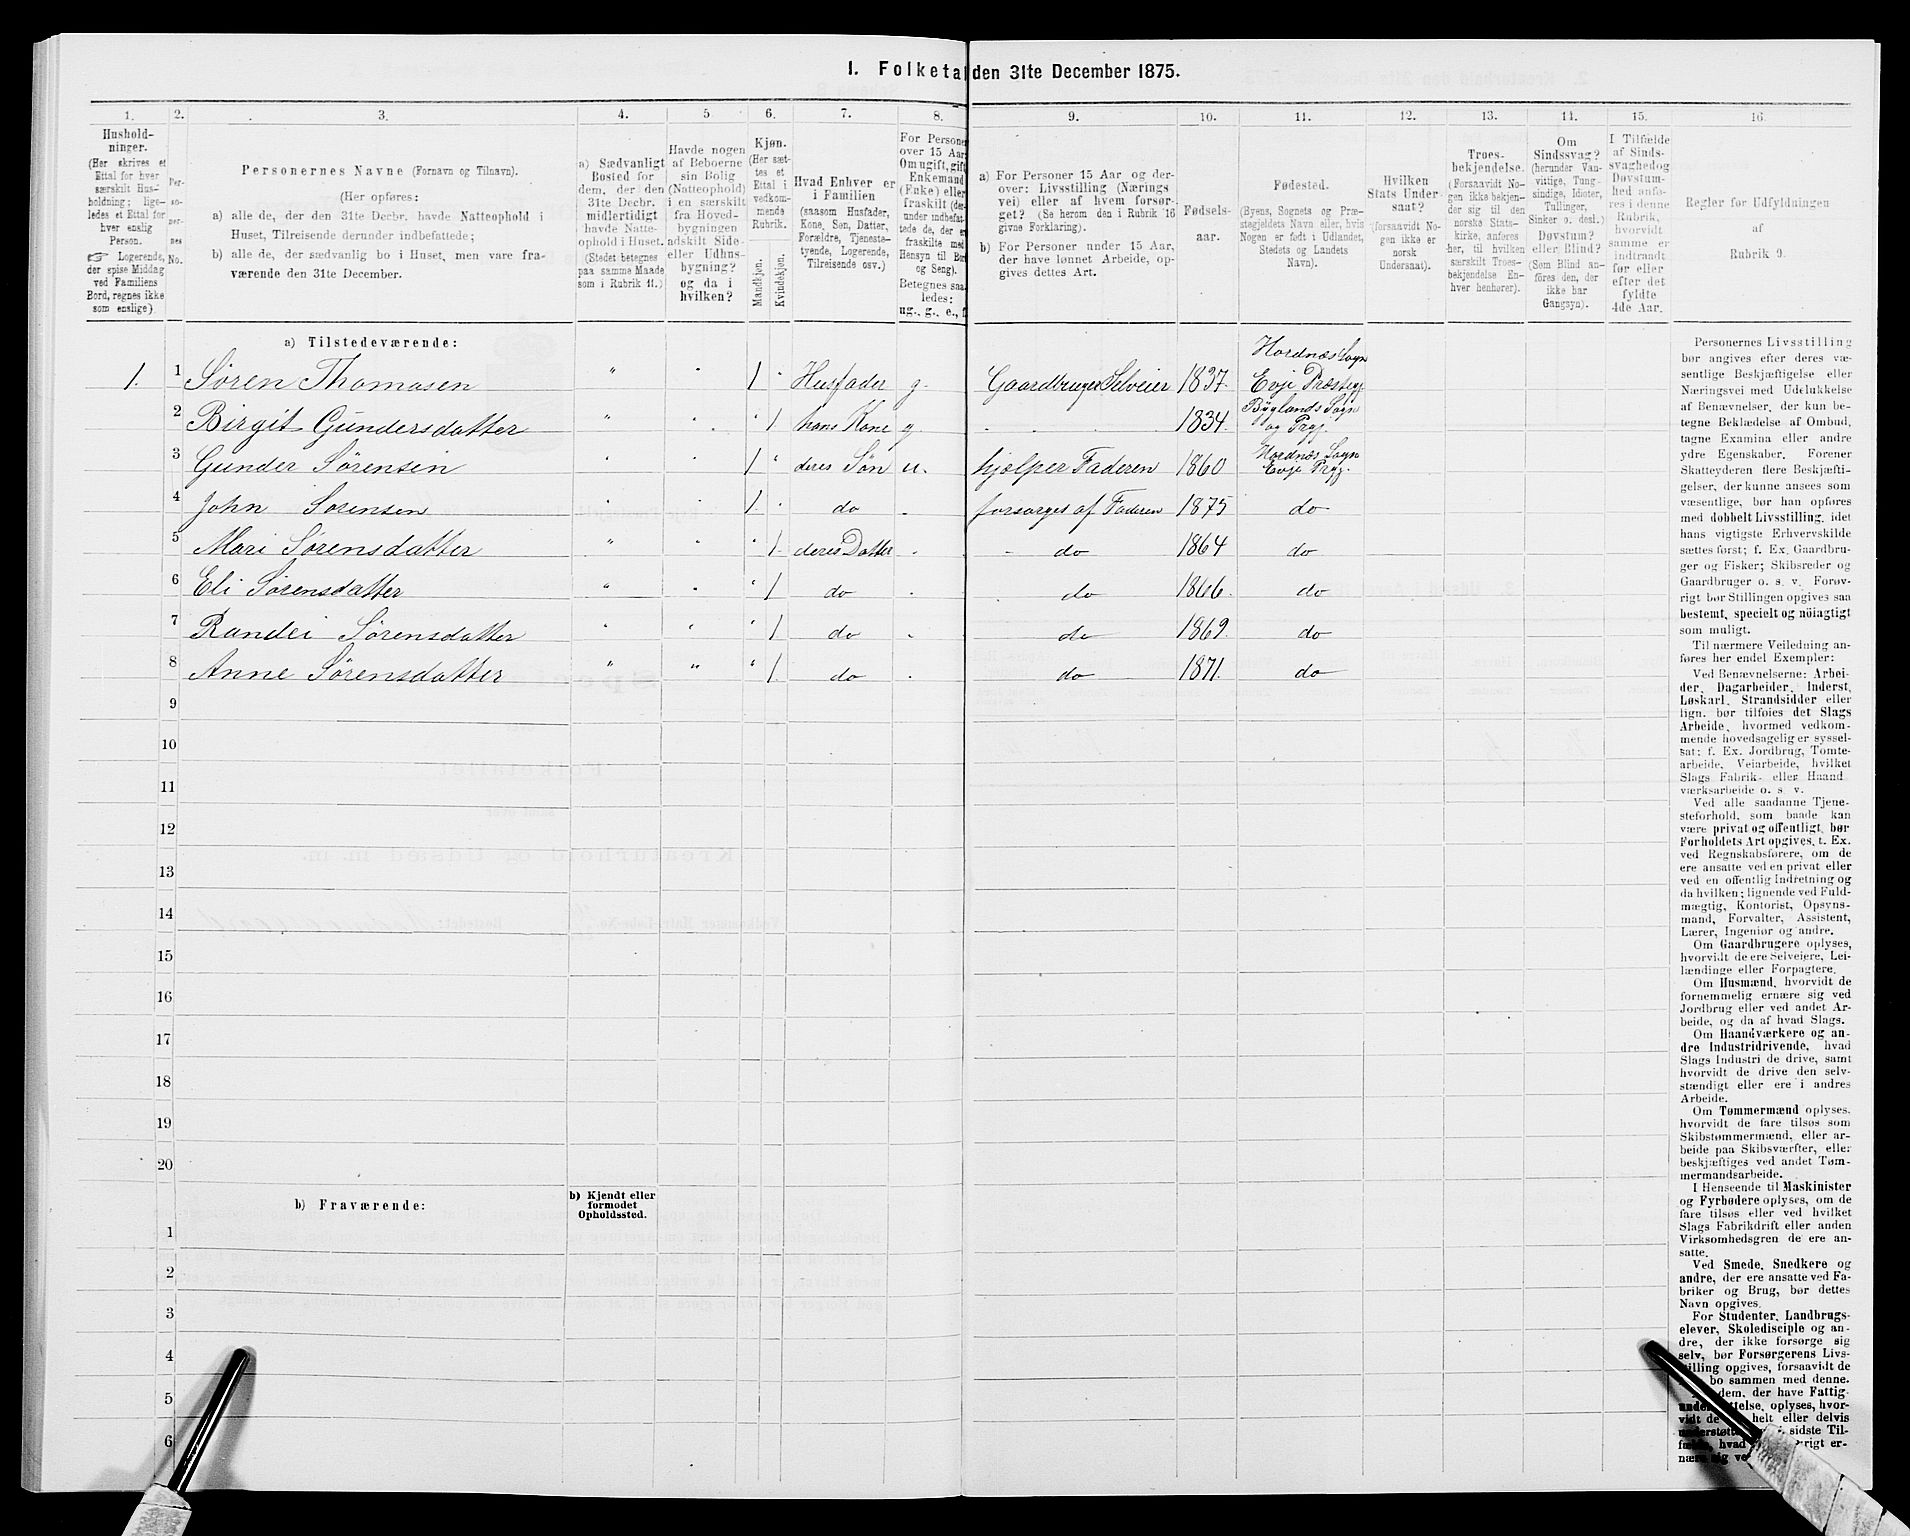 1. Folketal den 31te December 1875.
1.
2.
3.
4.
5
6.
7.
8.
9.
10.
11.
12.
13.
14.
15.
16.
Hushold-
ninger.
(Her skrives et
Ettal for hver
særskilt Hus-
holdning; lige-
ledes et Ettal for
hver enslig
Person.
☞ Logerende,
der spise Middag
ved Familiens
Bord, regnes ikke
som enslige).
Per-
so-
ner-
nes
No.
Personernes Navne (Fornavn og Tilnavn).
(Her opføres:
a) alle de, der den 31te Decbr. havde Natteophold i
Huset, Tilreisende derunder indbefattede;
b) alle de, der sædvanlig bo i Huset, men vare fra-
værende den 31te December.
a) Sædvanligt
Bosted for
dem, der den
31te Decbr.
midlertidigt
havde Natte-
ophold i Huset.
(Stedet betegnes
paa samme Maade
som i Rubrik 11.)
Havde nogen
af Beboerne
sin Bolig
(Natteophold)
i en særskilt
fra Hoved-
bygningen
adskilt Side-
eller Udhus-
bygning?
og da i
hvilken?
Kjøn.
(Her sæt-
tes et
Ettal i
vedkom-
mende
Rubrik.
Mandkjøn.
Kvindekjøn.
Hvad Enhver er
i Familien
(saasom Husfader,
Kone, Søn, Datter,
Forældre, Tjeneste-
tyende, Logerende,
Tilreisende osv.)
For Persone
over 15 Aar
Om ugift, gift
Enkemand
(Enke) eller
fraskilt (der-
under indbefat-
tede de, der er
fraskilte med
Hensyn til Bo
og Seng).
Betegnes saa
ledes:
ug., g., e., f
a) For Personer 15 Aar og der-
over: Livsstilling (Nærings
vei) eller af hvem forsør-
get? (Se herom den i Rubrik 16
givne Forklaring).
b) For Personer under 15 Aar,
der have lønnet Arbeide, op-
gives dettes Art.
Fødsels-
aar.
Fødested.
(Byens, Sognets og Præ-
stegjeldets Navn eller, hvis
Nogen er født i Udlandet,
Stedets og Landets
Navn).
Hvilken
Stats Under
saat?
(forsaavidt No-
gen ikke er
norsk
Undersaat).
Troes-
bekjendelse.
(Forsaavidt No-
gen ikke bekjen-
der sig til den
norske Stats-
kirke, anføres
her, til hvilken
særskilt Troes-
bekjendelse En-
hver henhører).
Om
Sindssvag?
(herunder Van-
vittige, Tung-
sindige, Idioter,
Tullinger,
Sinker o. desl.)
Døvstum?
eller Blind?
(Som Blind an-
føres den, der
ikke har
Gangsyn).
I Tilfælde
af Sinds-
svaghed og
Døvstum-
hed anfø-
res i denne
Rubrik,
hvorvidt
samme er
indtraadt
før eller
efter det
fyldte
4de Aar.
Regler for Udfyldningen
af
Rubrik 9.
a) Tilstedeværende:
1. 1 Søren Thomasen " " 1 " Husfader g. Gaardbruger Selveier 1837. Hordnæs Sogn Evje Præstegj
2 Birgit Gundersdatter " " " 1 hans Kone g. 1834. Byglands Sogn og Prgj.
3 Gunder Sørensen " " 1 " deres Søn u. hjælper Faderen 1860 Hordnæs Sogn Evje Prgj.
4 John Sørensen " " 1. do forsørges af Faderen 1875 do
5 Mari Sørensdatter " " " 1. deres Datter do 1864 do
6 Eli Sørensdatter " " " 1 do do 1866. do
7 Randei Sørensdatter " " " 1 do do 1869. do
8 Anne Sørensdatter " " " 1. do do 1871. do
9
10
11
12
13
14
15
16
17
18
19
20
b) Fraværende:
b) Kjendt eller
formodet
Opholdssted.
1
2
3
4
5
6
Personernes Livsstilling
bør angives efter deres væ-
sentlige Beskjæftigelse eller
Næringsvei med Udelukkelse
af Benævnelser, der kun be-
tegne Beklædelse af Ombud,
tagne Examina eller andre
ydre Egenskaber. Forener
Skatteyderen flere Beskjæfti-
gelser, der kunne ansees som
væsentlige, bør han opføres
med dobbelt Livsstilling, idet
hans vigtigste Erhvervskilde
sættes først; f. Ex. Gaardbru-
ger og Fisker; Skibsreder og
Gaardbruger o. s. v. Forøv-
rigt bør Stillingen opgives saa
bestemt, specielt og nöiagtigt
som muligt.
Til nærmere Veiledning an-
føres her endel Exempler:
Ved Benævnelserne: Arbei-
der, Dagarbeider, Inderst,
Løskarl, Strandsidder eller
lign. bør tilføies det Slags
Arbeide, hvormed vedkom-
mende hovedsagelig er syssel-
sat; f. Ex. Jordbrug, Tomte-
arbeide, Veiarbeide, hvilket
Slags Fabrik- eller Haand
værksarbeide o. s. v.
Ved alle saadanne Tjene-
steforhold, som baade kan
være privat og offentligt, bør
Forholdets Art opgives, t. Ex.
ved Regnskabsførere, om de
ere ansatte ved en privat eller
ved en offentlig Indretning og
da hvilken; lignende ved Fuld-
mægtig, Kontorist, Opsyns-
mand, Forvalter, Assistent,
Lærer, Ingeniør og andre.
Om Gaardbrugere oplyses,
hvorvidt de ere Selveiere, Lei-
lændinge eller Forpagtere.
Om Husmænd, hvorvidt de
fornemmelig ernære sig ved
Jordbrug eller ved andet Ar-
beide, og da af hvad Slags.
Om Haandværkere og an-
dre Industridrivende, hvad
Slags Industri de drive, samt
hvorvidt de drive den selv-
stændigt eller ere i andres
Arbeide.
Om Tømmermænd oplyses,
hvorvidt de fare tilsøs som
Skibstømmermænd, eller ar-
beide paa Skibsværfter, eller
beskjæftiges ved andet Tøm-
mermandsarbeide.
I Henseende til Maskinister
og Fyrbødere oplyses, om de
fare tilsøs eller ved hvilket
Slags Fabrikdrift eller anden
Virksomhedsgren de ere an-
satte.
Ved Smede, Snedkere og
andre, der ere ansatte ved Fa-
briker og Brug, bør dettes
Navn opgives.
For Studenter, Landbrugs-
elever, Skoledisciple og an-
dre, der ikke forsørge sig
selv, bør Forsørgerens Livs-
stilling opgives, forsaavidt de
bo sammen med denne.
dem, der have Fattig-
ttelse, oplyses, hvor-
vidt de helt eller delvis
sidste Til-
hvad